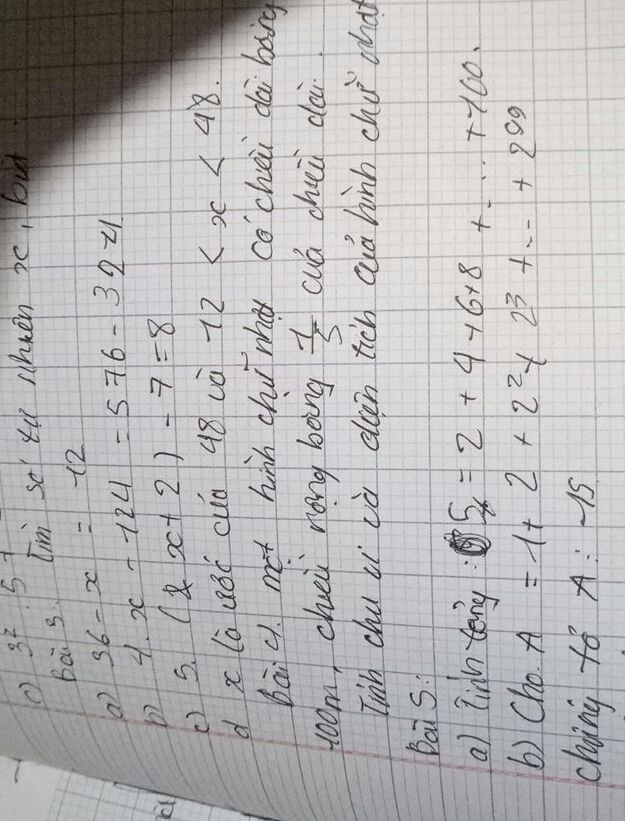 c) 3² . 5
Bài 3: Tìm số tự nhiên x, biết.
a) 36 - x = 12
b) 4. x - 124 = 576 - 324
c) 5. (x + 2) - 7 = 8
d x là ước của 48 và 12 < x < 48.
Bài 4. một hình chữ nhật có chiều dài bằng
100m, chiều rộng bằng 1/5 của chiều dài.
Tính chu vi và diện tích của hình chữ nhật
Bài 5:
a) Tính tổng: S = 2 + 4 + 6 + 8 + ... + 100.
b) Cho A = 1 + 2 + 2² + 2³ + ... + 2⁹⁹
chứng tỏ A ⋮ 15